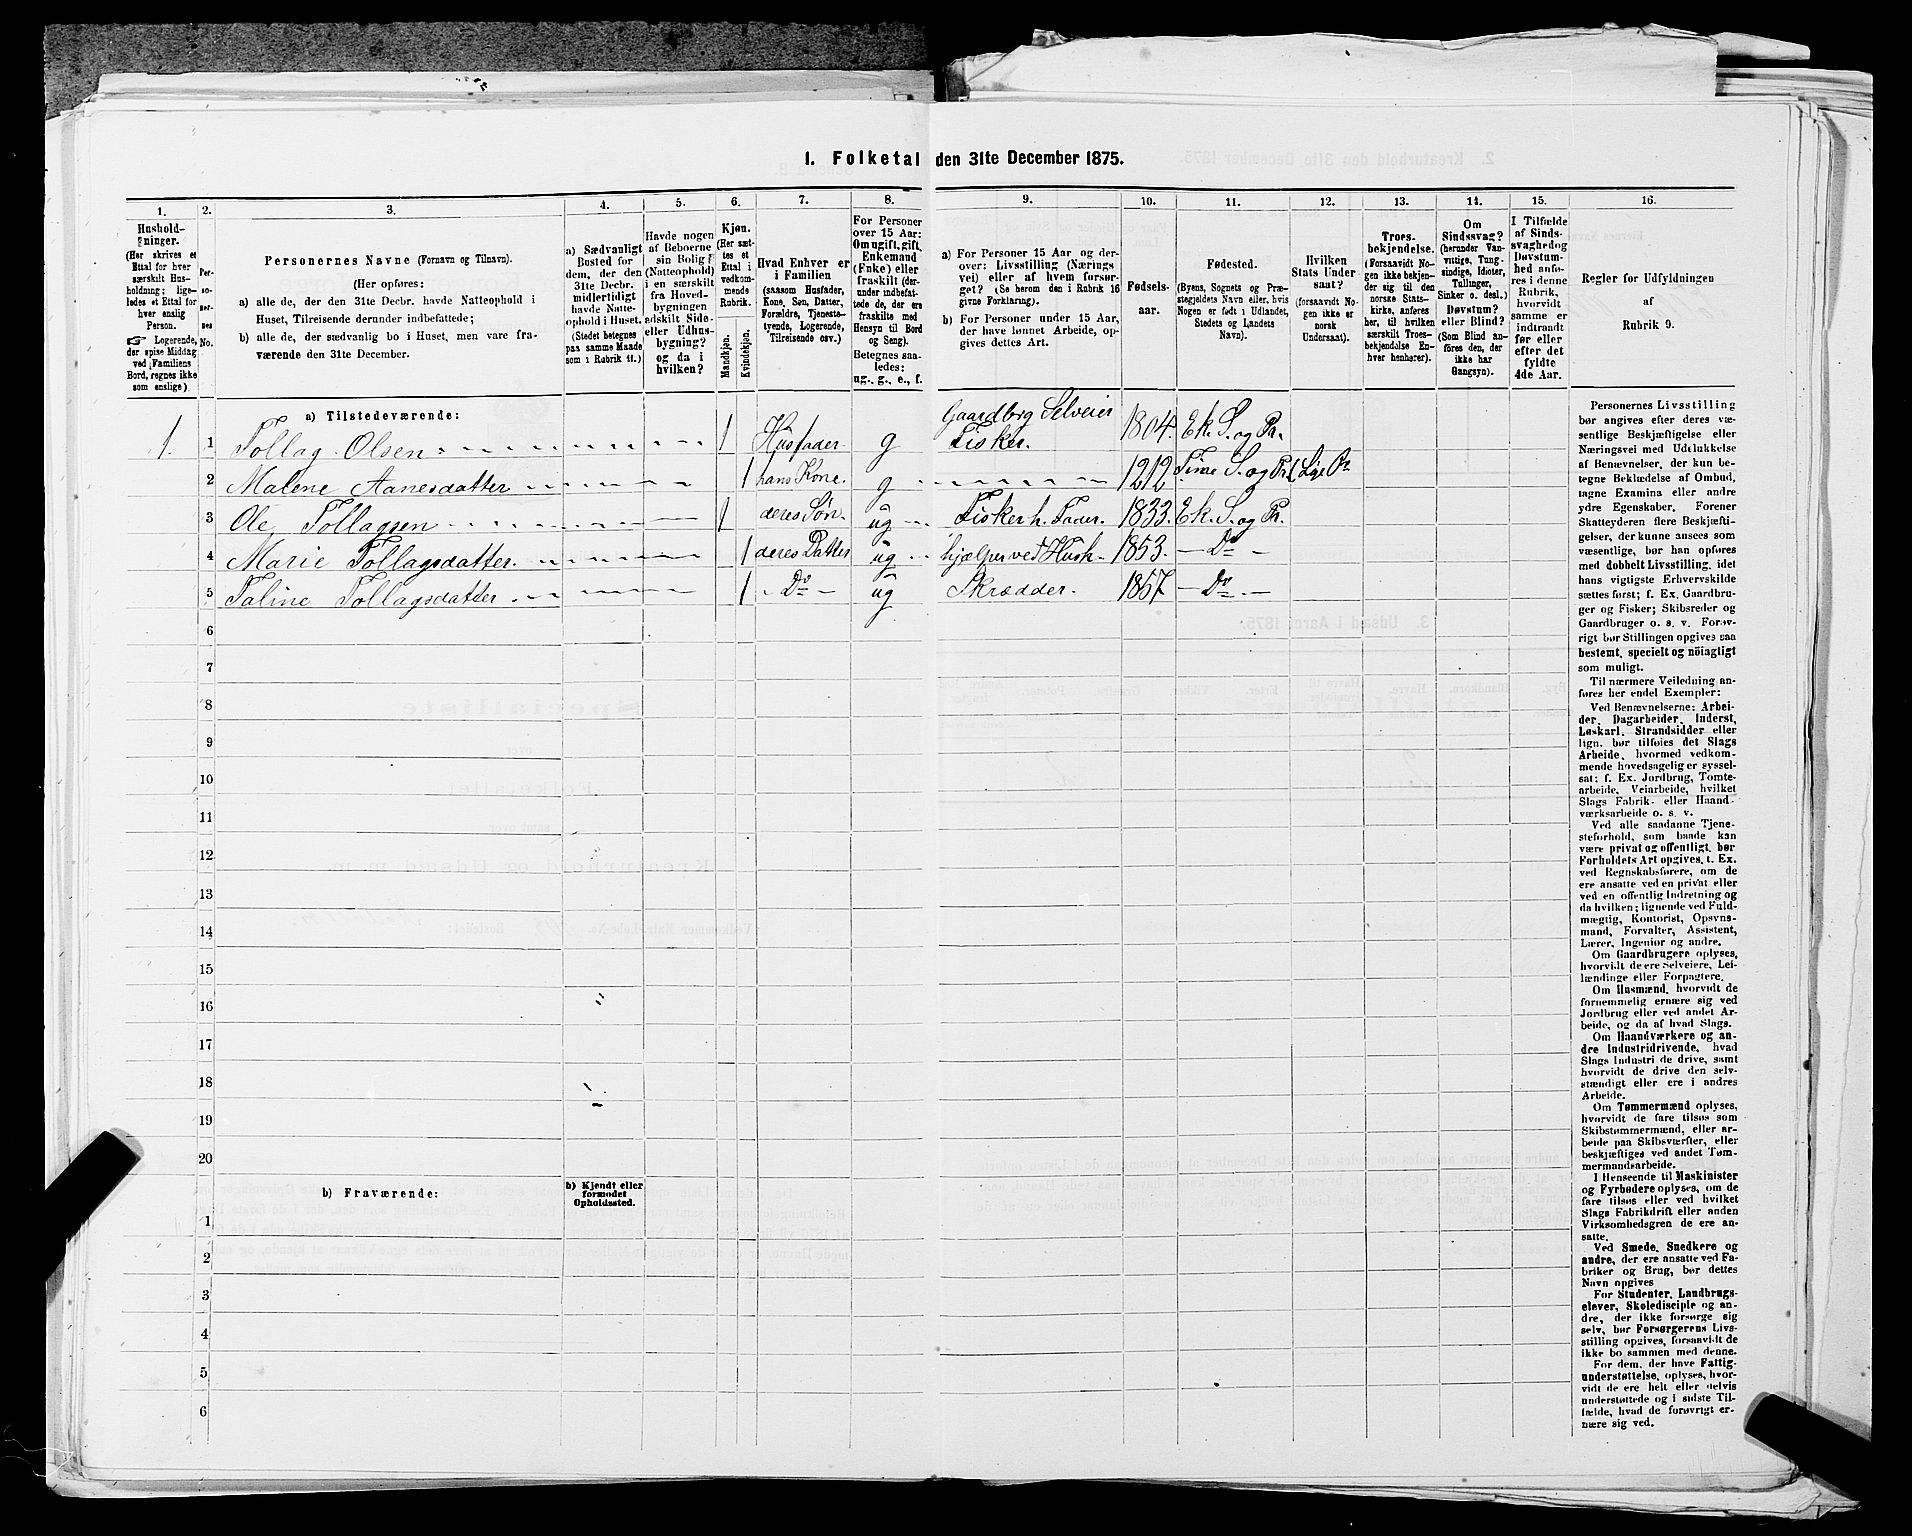 I. Folketal den 31te December 1875.
1. 2. 3. 4. 5. 6. 7. 8. 9. 10. 11. 12. 13. 14. 15. 16.
Hushold-
gninger.
(Her skrives et
Ettal for hver
særskilt Hus-
holdning; lige-
ledes et Ettal for
hver enslig
Person.
☞ Logerende,
der spise Middag
ved Familiens
Bord, regnes ikke
som enslige).
Per-
so-
ner-
nes
No.
Personernes Navne (Fornavn og Tilnavn).
(Her opføres:
a) alle de, der den 31te Decbr. havde Natteophold i
Huset, Tilreisende derunder indbefattede;
b) alle de, der sædvanlig bo i Huset, men vare fra-
værende den 31te December.
a) Sædvanligt
Bosted for
dem, der den
31te Decbr.
midlertidigt
havde Natte-
ophold i Huset.
(Stedet betegnes
paa samme Maade
som i Rubrik 11.)
Havde nogen
af Beboerne
sin Bolig
(Natteophold)
i en særskilt
fra Hoved-
bygningen
adskilt Side-
eller Udhus-
bygning?
og da i
hvilken?
Kjøn.
(Her sæt-
tes et
Ettal i
vedkom-
mende
Rubrik.
Mandkjøn.
Kvindekjøn.
Hvad Enhver er
i Familien
(saasom Husfader,
Kone, Søn, Datter,
Forældre, Tjeneste-
tyende, Logerende,
Tilreisende osv.)
For Personer
over 15 Aar:
Om ugift, gift,
Enkemand
(Enke) eller
fraskilt (der-
under indbefat-
tede de, der ere
fraskilte med
Hensyn til Bord
og Seng).
Betegnes saa-
ledes:
ug., g., e., f.
a) For Personer 15 Aar og der-
over: Livsstilling (Nærings-
vei) eller af hvem forsør-
get? (Se herom den i Rubrik 16
givne Forklaring).
b) For Personer under 15 Aar,
der have lønnet Arbeide, op-
gives dettes Art.
Fødsels-
aar.
Fødested.
(Byens, Sognets og Præ-
stegjeldets Navn eller, hvis
Nogen er født i Udlandet,
Stedets og Landets
Navn).
Hvilken
Stats Under-
saat?
(forsaavidt No-
gen ikke er
norsk
Undersaat).
Troes-
bekjendelse.
(Forsaavidt No-
gen ikke bekjen-
der sig til den
norske Stats-
kirke, anføres
her, til hvilken
særskilt Troes-
bekjendelse En-
hver henhører).
Om
Sindssvag?
(herunder Van-
vittige, Tung-
sindige, Idioter,
Tullinger,
Sinker o. desl.)
Døvstum?
eller Blind?
(Som Blind an-
føres den, der
ikke har
Gangsyn).
I Tilfælde
af Sinds-
svaghed og
Døvstum-
hed anfø-
res i denne
Rubrik,
hvorvidt
samme er
indtraadt
før eller
efter det
fyldte
4de Aar.
Regler for Udfyldningen
af
Rubrik 9.
a) Tilstedeværende:
Gaardbrg Selveier
1 1 Tollag Olsen 1 Husfader g Fisker. 1804. Ek. S. og Pr.
2 Malene Aanesdatter 1 hans Kone. g 1212 Time S. og Pr
3 Ole Tollagsen 1 deres Søn. ug Fisker h. Fader. 1833. Ek. S. og Pr.
4 Marie Tollagsdatter. 1 deres Datter ug hjælper ved Hush. 1853. Do
5 Taline Tollagsdatter 1 Do ug Skrædder. 1857 Do
6
7
8
9
10
11
12
13
14
15
16
17
18
19
20
b) Fraværende:
b) Kjendt eller
formodet
Opholdssted.
1
2
3
4
5
6
Personernes Livsstilling
bør angives efter deres væ-
sentlige Beskjæftigelse eller
Næringsvei med Udelukkelse
af Benævnelser, der kun be-
tegne Beklædelse af Ombud,
tagne Examina eller andre
ydre Egenskaber. Forener
Skatteyderen flere Beskjæfti-
gelser, der kunne ansees som
væsentlige, bør han opføres
med dobbelt Livsstilling, idet
hans vigtigste Erhvervskilde
sættes først; f. Ex. Gaardbru-
ger og Fisker; Skibsreder og
Gaardbruger o. s. v. Forøv-
rigt bør Stillingen opgives saa
bestemt, specielt og nöiagtigt
som muligt.
Til nærmere Veiledning an-
føres her endel Exempler:
Ved Benævnelserne: Arbei-
der, Dagarbeider, Inderst,
Løskarl, Strandsidder eller
lign. bør tilføies det Slags
Arbeide, hvormed vedkom-
mende hovedsagelig er syssel-
sat; f. Ex. Jordbrug, Tomte-
arbeide, Veiarbeide, hvilket
Slags Fabrik- eller Haand-
værksarbeide o. s. v.
Ved alle saadanne Tjene-
steforhold, som baade kan
være privat og offentligt, bør
Forholdets Art opgives, t. Ex.
ved Regnskabsførere, om de
ere ansatte ved en privat eller
ved en offentlig Indretning og
da hvilken; lignende ved Fuld-
mægtig, Kontorist, Opsyns-
mand, Forvalter, Assistent,
Lærer, Ingeniør og andre.
Om Gaardbrugere oplyses,
hvorvidt de ere Selveiere, Lei-
lændinge eller Forpagtere.
Om Husmænd, hvorvidt de
fornemmelig ernære sig ved
Jordbrug eller ved andet Ar-
beide, og da af hvad Slags.
Om Haandværkere og an-
dre Industridrivende, hvad
Slags Industri de drive, samt
hvorvidt de drive den selv-
stændigt eller ere i andres
Arbeide.
Om Tømmermænd oplyses,
hvorvidt de fare tilsøs som
Skibstømmermænd, eller ar-
beide paa Skibsværfter, eller
beskjæftiges ved andet Tøm-
mermandsarbeide.
I Henseende til Maskinister
og Fyrbødere oplyses, om de
fare tilsøs eller ved hvilket
Slags Fabrikdrift eller anden
Virksomhedsgren de ere an-
satte.
Ved Smede, Snedkere og
andre, der ere ansatte ved Fa-
briker og Brug, bør dettes
Navn opgives
For Studenter, Landbrugs-
elever, Skoledisciple og an-
dre, der ikke forsørge sig
selv, bør Forsørgerens Livs-
stilling opgives, forsaavidt de
ikke bo sammen med denne.
For dem, der have Fattig-
understøttelse, oplyses, hvor-
vidt de ere helt eller delvis
understøttede og i sidste Til-
fælde, hvad de forøvrigt er-
nære sig ved.